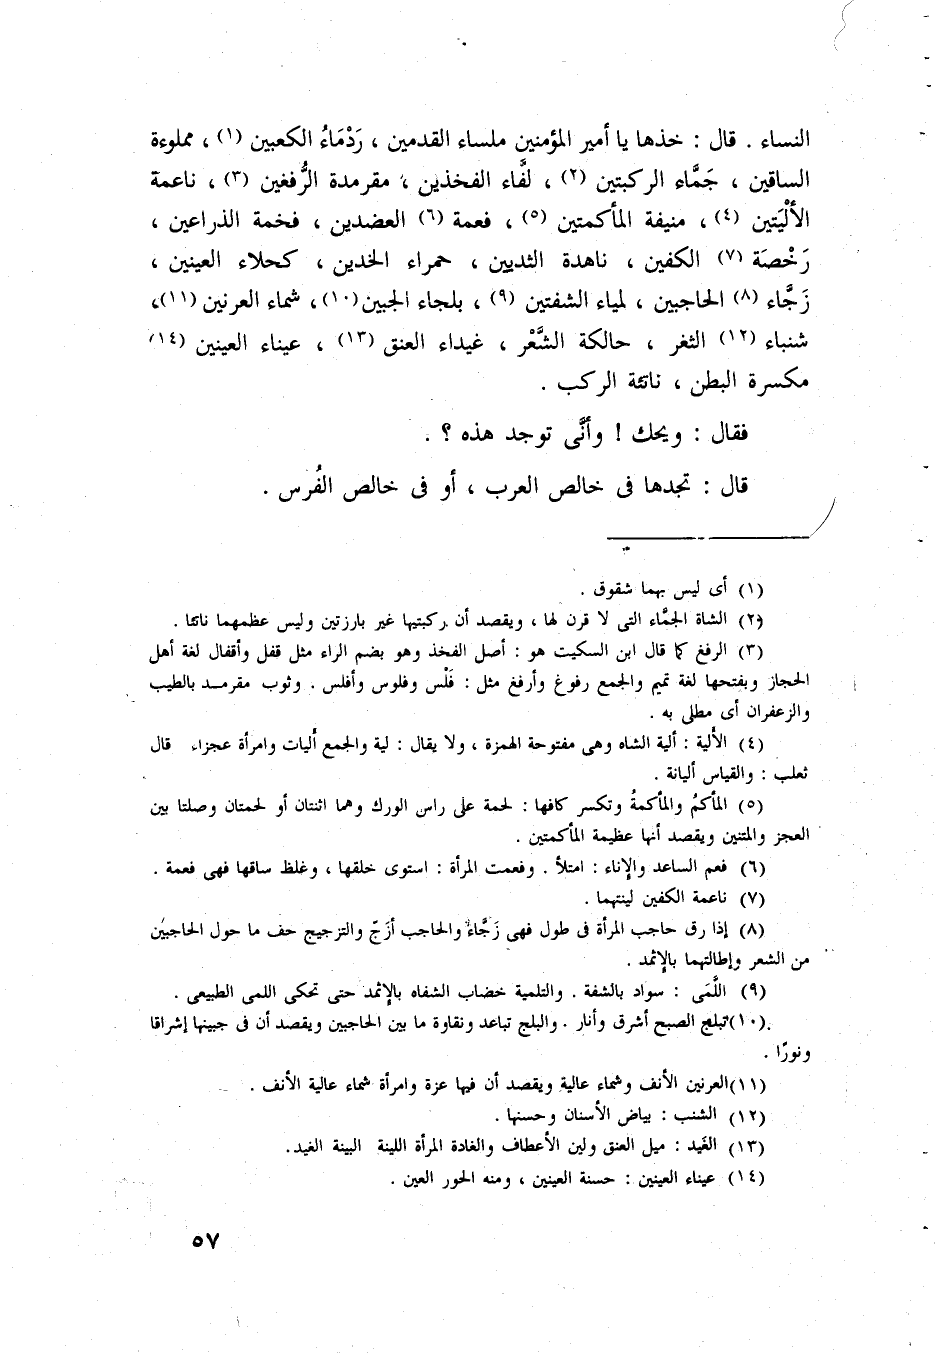 النساء . قال : خذها يا أمير المؤمنين ملساء القدمين ، رَدْمَاءُ الكعبين (١) ، مملوءة
الساقين ، جَمَّاء الركبتين (٢) ، لفَّاء الفخذين ، مقرمدة الرُّفغين (٣) ، ناعمة
الأَلْيَتين (٤) ، منيفة المأكمتين (٥) ، فعمة (٦) العضدين ، فخمة الذراعين ،
رَخْصَة (٧) الكفين ، ناهدة الثديين ، حمراء الخدين ، كحلاء العينين ،
زَجَّاء (٨) الحاجبين ، لمياء الشفتين (٩) ، بلجاء الجبين(١٠) ، شماء العرنين (١١)،
شنباء (١٢) الثغر ، حالكة الشَّعْر ، غيداء العنق (١٣) ، عيناء العينين (١٤)
مكسرة البطن ، ناتئة الركب .
فقال : ويحك ! وأنَّى توجد هذه ؟ .
قال : تجدها فى خالص العرب ، أو فى خالص الفُرس .
(١) أى ليس بهما شقوق .
(٢) الشاة الجمَّاء التى لا قرن لها ، ويقصد أن ركبتيها غير بارزتين وليس عظمهما ناتئا .
(٣) الرفغ كما قال ابن السكيت هو : أصل الفخذ وهو بضم الراء مثل قفل وأقفال لغة أهل
الحجاز وبفتحها لغة تميم والجمع رفوغ وأرفغ مثل : فَلْس وفلوس وأفلس . وثوب مقرمد بالطيب
والزعفران أى مطلى به .
(٤) الألية : ألية الشاه وهى مفتوحة الهمزة ، ولا يقال : لية والجمع أليات وامرأة عجزاء قال
ثعلب : والقياس أليانة .
(٥) المأكمُ والمأكمةُ وتكسر كافها : لحمة على راس الورك وهما اثنتان أو لحمتان وصلتا بين
العجز والمتنين ويقصد أنها عظيمة المأكمتين .
(٦) فعم الساعد والإناء : امتلأ . وفعمت المرأة : استوى خلقها ، وغلظ ساقها فهى فعمة .
(٧) ناعمة الكفين لينتهما .
(٨) إذا رق حاجب المرأة فى طول فهى زَجَّاء والحاجب أزَجّ والتزجيج حف ما حول الحاجبين
من الشعر وإطالتهما بالإثمد .
(٩) اللَّمَى : سواد بالشفة . والتلمية خضاب الشفاه بالإثمد حتى تحكى اللمى الطبيعى .
(١٠)تبلج الصبح أشرق وأنار . والبلج تباعد ونقاوة ما بين الحاجبين ويقصد أن فى جبينها إشراقا
ونورًا .
(١١)العرنين الأنف وشماء عالية ويقصد أن فيها عزة وامرأة شماء عالية الأنف .
(١٢) الشنب : بياض الأسنان وحسنها .
(١٣) الغَيد : ميل العنق ولين الأعطاف والغادة المرأة اللينة البينة الغيد.
(١٤) عيناء العينين : حسنة العينين ، ومنه الحور العين .
٥٧